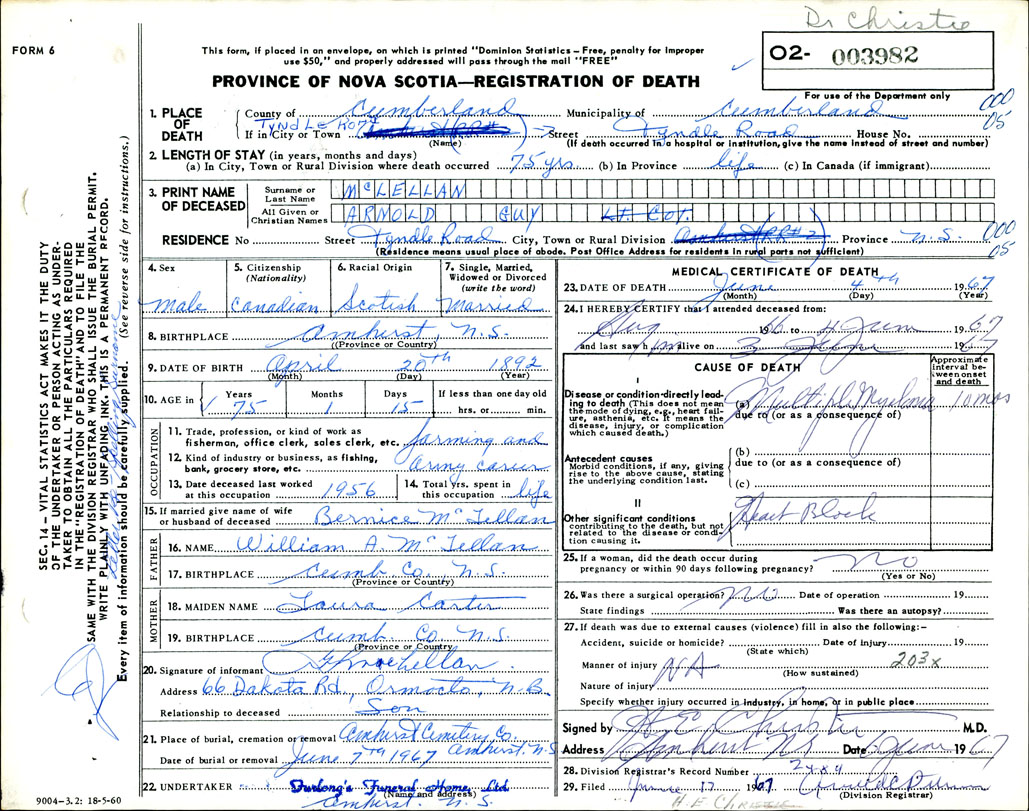 Dr Christie
FORM 6
This form, if placed in an envelope, on which is printed "Dominion Statistics – Free, penalty for improper
use $50," and properly addressed will pass through the mail "FREE"
O2- 003982
PROVINCE OF NOVA SCOTIA—REGISTRATION OF DEATH
For use of the Department only
000
05
1. PLACE OF DEATH
County of Cumberland Municipality of Cumberland
If in City or Town Street Tyndle Road House No.
(Name) (If death occurred in a hospital or institution, give the name instead of street and number)
2. LENGTH OF STAY (in years, months and days)
(a) In City, Town or Rural Division where death occurred 75 yrs. (b) In Province life (c) In Canada (if immigrant)
3. PRINT NAME OF DECEASED
Surname or Last Name McLELLAN
All Given or Christian Names ARMOLD GUY Lt. Col.
RESIDENCE No Street Tyndle Road City, Town or Rural Division Amherst RR#2 Province N.S. 000
05
(Residence means usual place of abode. Post Office Address for residents in rural parts not sufficient)
4. Sex 5. Citizenship (Nationality) 6. Racial Origin 7. Single, Married, Widowed or Divorced (write the word)
Male Canadian Scotish Married
8. BIRTHPLACE Amherst N.S.
(Province or Country)
9. DATE OF BIRTH April 20th 1892
(Month) (Day) (Year)
10. AGE in Years Months Days If less than one day old
75 1 15 hrs. or min.
OCCUPATION
11. Trade, profession, or kind of work as
fisherman, office clerk, sales clerk, etc. farming and
12. Kind of industry or business, as fishing,
bank, grocery store, etc. Army career
13. Date deceased last worked
at this occupation 1956
14. Total yrs. spent in
this occupation life
15. If married give name of wife
or husband of deceased Bernice McLellan
FATHER
16. NAME William A. McLellan
17. BIRTHPLACE Cumb Co. N.S.
(Province or Country)
MOTHER
18. MAIDEN NAME Laura Carter
19. BIRTHPLACE Cumb. Co N.S.
(Province or Country)
20. Signature of informant
Address 66 Dakota Rd, Oromocto, N.B.
Relationship to deceased Son
21. Place of burial, cremation or removal Amherst Cemetery Co.
Amherst, N.S
Date of burial or removal June 7th 1967
22. UNDERTAKER Furlong's Funeral Home, Ltd.
(Name and address)
Amherst, N.S
9004-3.2: 18-5-60
MEDICAL CERTIFICATE OF DEATH
23. DATE OF DEATH June 4th 1967
(Month) (Day) (Year)
24. I HEREBY CERTIFY that I attended deceased from:
Aug 1966 to 4 June 1967
and last saw him alive on 3 June 1967
CAUSE OF DEATH
Approximate interval between onset and death
I
Disease or condition directly leading to death (This does not mean the mode of dying, e.g., heart failure, asthenia, etc. It means the disease, injury, or complication which caused death.)
(a) Multiple Myeloma 10 mos
due to (or as a consequence of)
Antecedent causes
Morbid conditions, if any, giving rise to the above cause, stating the underlying condition last.
(b)
due to (or as a consequence of)
(c)
II
Other significant conditions contributing to the death, but not related to the disease or condition causing it.
Heart Block
25. If a woman, did the death occur during
pregnancy or within 90 days following pregnancy? No
(Yes or No)
26. Was there a surgical operation? No Date of operation 19
State findings Was there an autopsy?
27. If death was due to external causes (violence) fill in also the following:–
Accident, suicide or homicide? Date of injury 19
(State which)
Manner of injury NA 203x
(How sustained)
Nature of injury
Specify whether injury occurred in industry, in home, or in public place
Signed by H E Christie M.D.
Address Amherst NS Date 6 June 1967
28. Division Registrar's Record Number
29. Filed June 17 1967
(Division Registrar)
H.E Christie
SEC. 14 – VITAL STATISTICS ACT MAKES IT THE DUTY
OF THE UNDERTAKER OR PERSON ACTING AS UNDER-
TAKER TO OBTAIN ALL THE PARTICULARS REQUIRED
IN THE "REGISTRATION OF DEATH" AND TO FILE THE
SAME WITH THE DIVISION REGISTRAR WHO SHALL ISSUE THE BURIAL PERMIT.
WRITE PLAINLY WITH UNFADING INK. THIS IS A PERMANENT RECORD.
Every item of information should be carefully supplied. (See reverse side for instructions.)